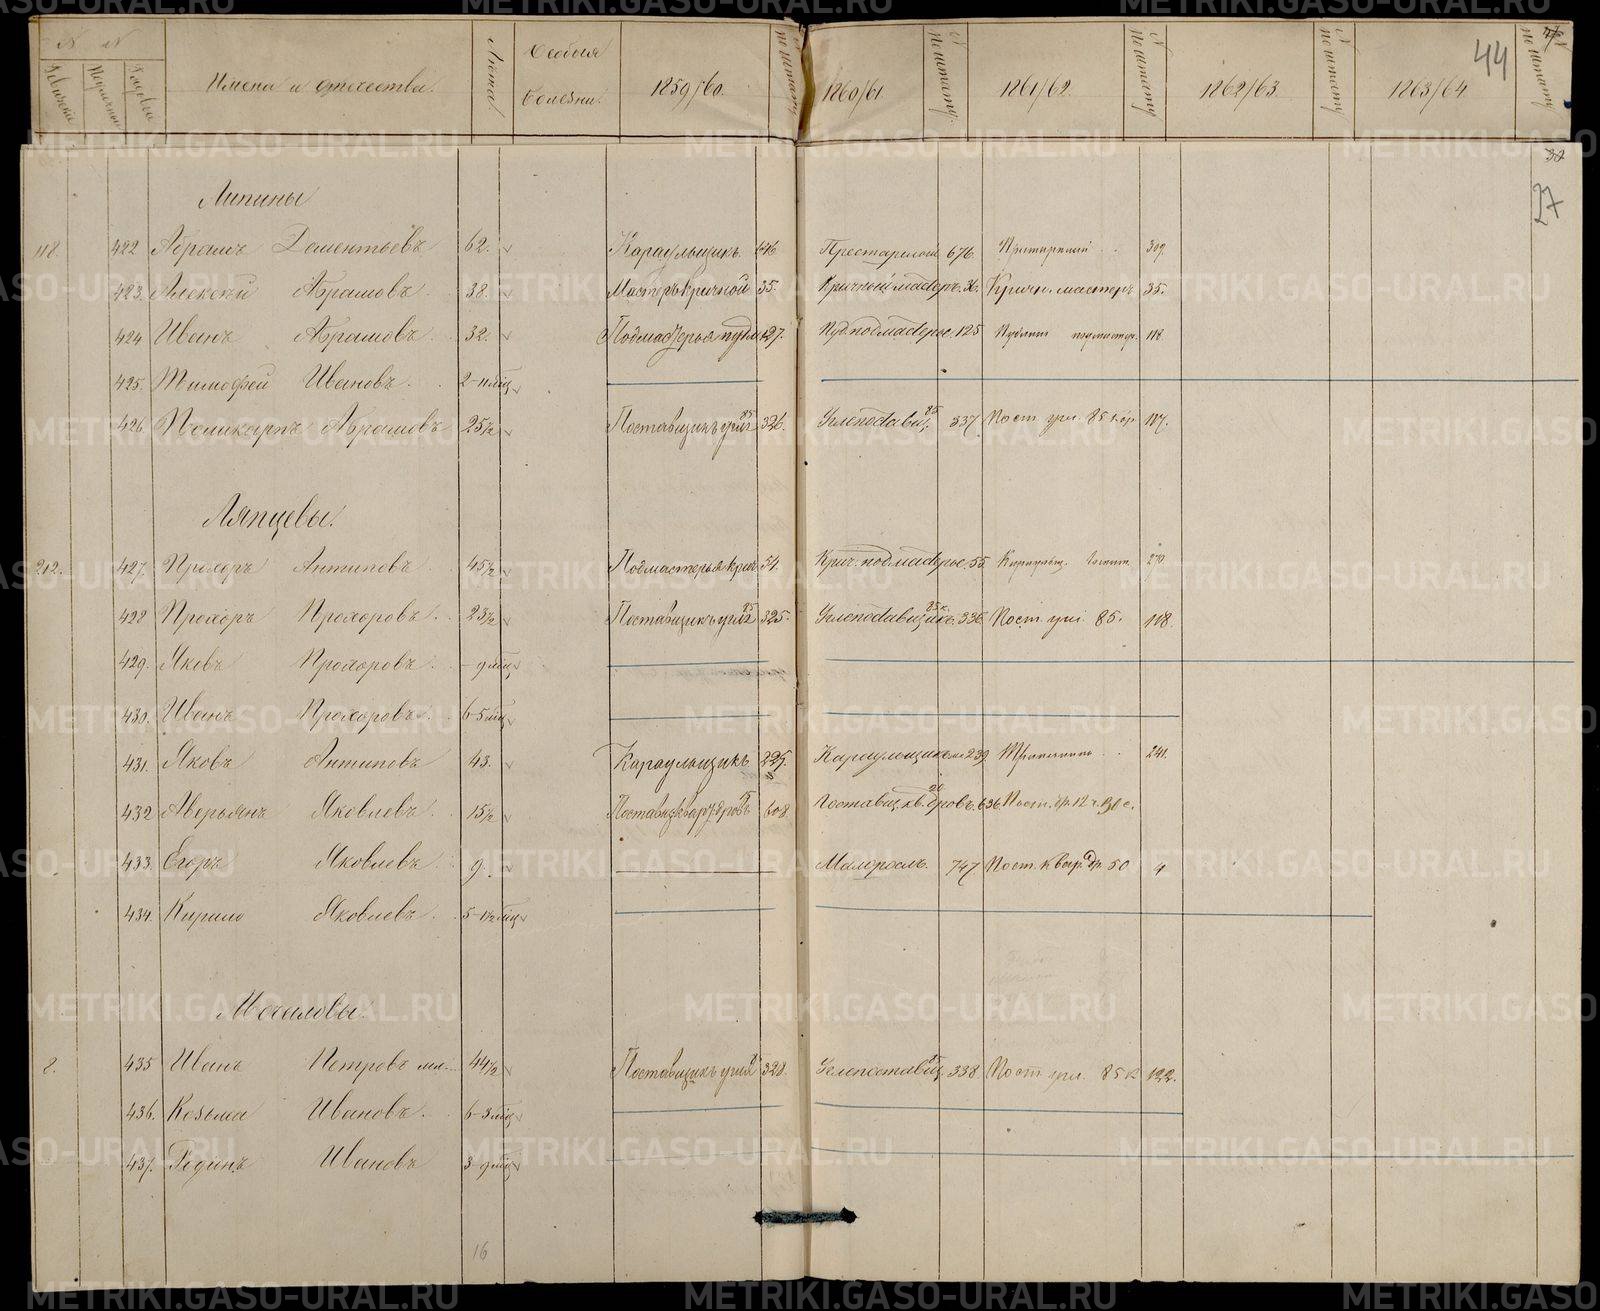 N N Имена и отчества. Лета Особыя болезни. 1859/60. по штату 1860/61 N по штату. 1861/62. N по штату 1862/63. N по штату 1863/64. N по штату
44
32
27
Липины
118. 422 Абрамъ Дементьевъ 62. Караульщикъ 646 Престарелой 676. Престарелый 309.
423. Алексѣй Абрамовъ 38. Мастеръ кричной 35. Кричный мастеръ. 36. Кричн. мастеръ 35.
424 Иванъ Абрамовъ 32. Подмастерья пудл. 127. Пуд. подмастерье. 125 Пудлинг. подмастер. 118
425. Тимофей Ивановъ. 2-11 мѣц
426 Поликарпъ Абрамовъ 25½ Поставщикъ угля 85 326. Углепоставщ. 85 337 Пост. угл. 85 кор 107.
Ляпцевы.
212. 427. Прохоръ Антиповъ. 45½ Подмастерья крич. 54. Крич. подмастерье. 55. Караульщ. 270
428 Прохоръ Прохоровъ. 23½ Поставщикъ угля 85 325. Углепоставщикъ. 85 к. 336 Пост. угл. 85. 108.
429. Яковъ Прохоровъ. - 9 мѣц
430. Иванъ Прохоровъ. 6-5 мѣц
431. Яковъ Антиповъ 43. Караульщикъ 225. Караульщикъ 239. 241.
432 Аверьянъ Яковлевъ 15½ Поставщ. кварт. дровъ 608. Поставщ. кв. дровъ. 20 636. Пост. др. 12 ч.
433. Егоръ Яковлевъ 9. Малоросл. 747 Пост. кварт. др. 50 4
434. Кирило Яковлевъ. 5-1½ мѣц
Мочаловы.
2. 435 Иванъ Петровъ мл. 44½ Поставщикъ угля 328. Углепоставщ. 338 Пост. угл. 85 к 122.
436. Козьма Ивановъ. 6-3 мѣц
437. Родіонъ Ивановъ 3-9 мѣц
16
METRIKI.GASO-URAL.RU